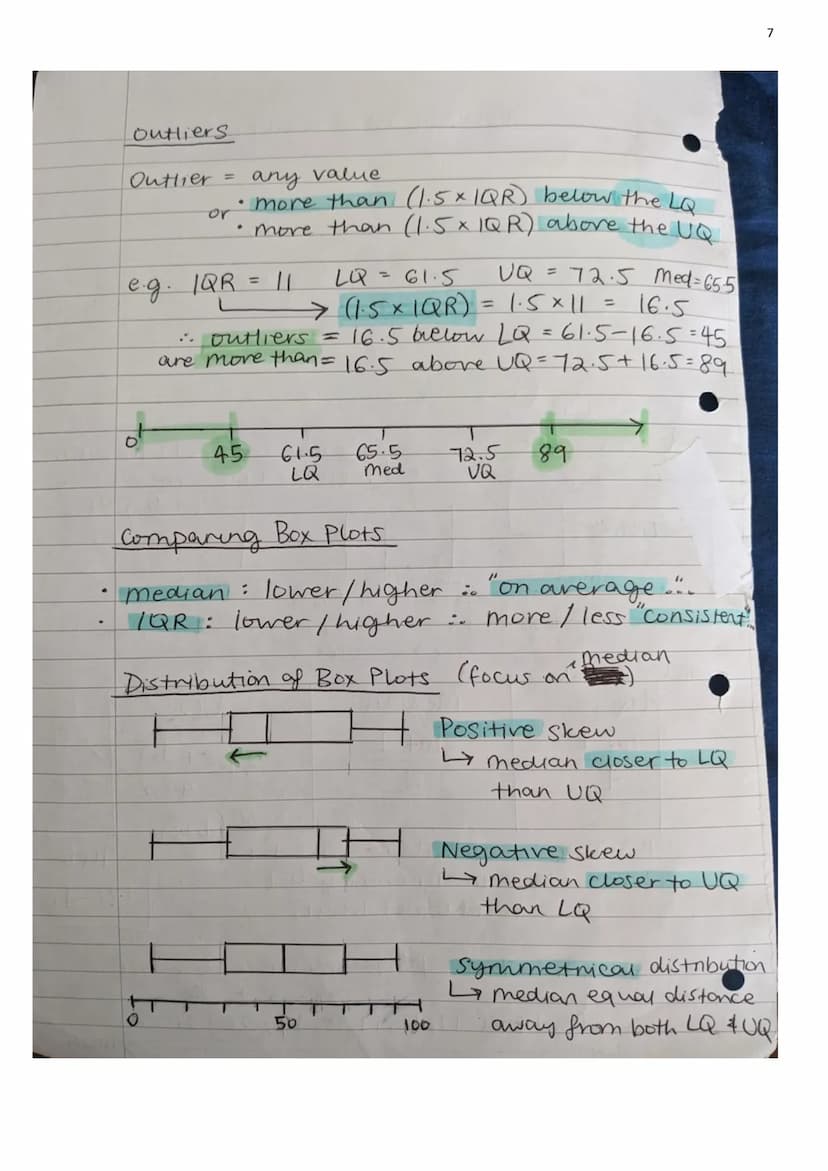 7
Outliers
Outlier = any value
or • more than (1.5 × IQR) below the LQ
• more than (1.5 × IQR) above the UQ
e.g. IQR = 11 LQ = 61.5 UQ = 72.5 Med=65.5
(1.5 × IQR) = 1.5 × 11 = 16.5
∴ outliers = 16.5 below LQ = 61.5-16.5 = 45
are more than = 16.5 above UQ = 72.5 + 16.5 = 89
0 45 61.5 65.5 72.5 89
LQ med UQ
Comparing Box Plots
• median : lower/higher ∴ "on average..."
• IQR : lower/higher ∴ more/less "consistent"..
Distribution of Box Plots (focus on median)
Positive skew
↳ median closer to LQ
than UQ
Negative skew
↳ median closer to UQ
than LQ
Symmetrical distribution
↳ median equal distance
away from both LQ & UQ
0 50 100